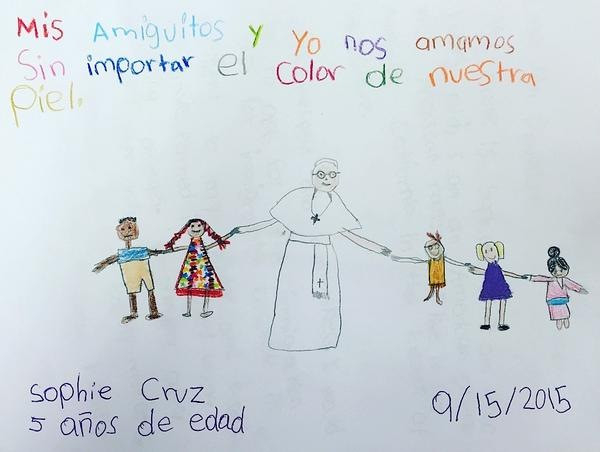 Mis Amiguitos y yo nos amamos
Sin importar el color de nuestra
Piel.
sophie Cruz
5 años de edad
9/15/2015